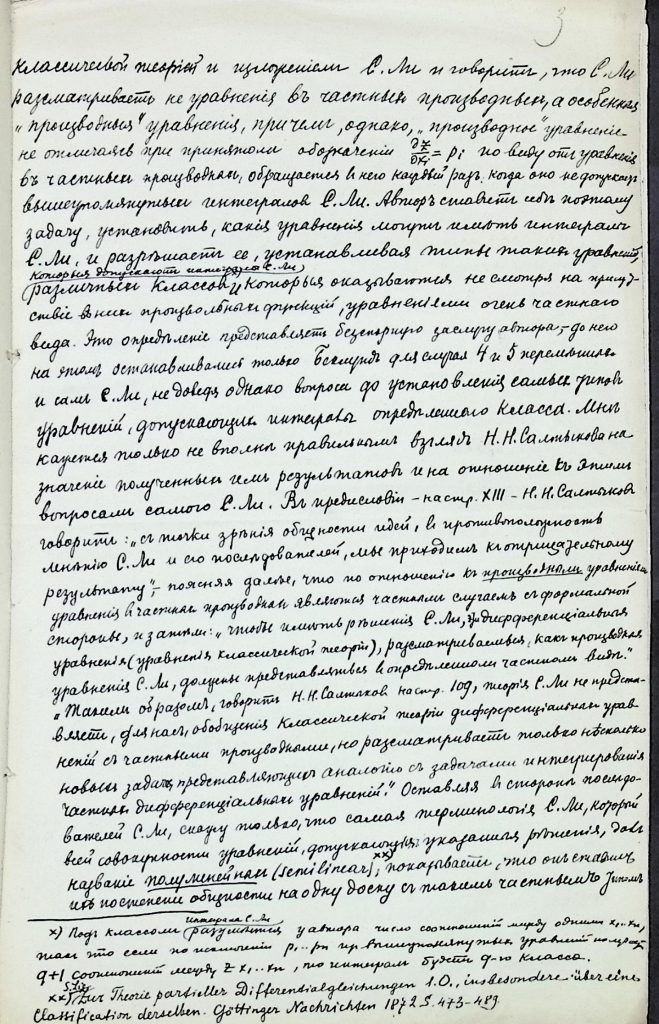 3
классической теорiей и изложенiем С. Ли и говоритъ, что С. Ли
разсматриваетъ не уравненiя въ частныхъ производныхъ, а особенныя
„производныя" уравненiя, причемъ, однако, „производное" уравненiе
не отличаясь при принятомъ обозначенiи ∂z/∂xi = pi по виду отъ уравненiя
въ частныхъ производныхъ, обращается въ него каждый разъ, когда оно не допускаетъ
вышеупомянутыхъ интеграловъ С. Ли. Авторъ ставитъ себѣ поэтому
задачу, установить, какiя уравненiя могутъ имѣть интегралы
С. Ли, и разрѣшаетъ ее, устанавливая типы такихъ уравненiй,
которыя допускаютъ интегралы С. Ли
различныхъ классовъ, которыя оказываются не смотря на присут-
ствiе въ нихъ произвольныхъ функцiй, уравненiями очень частнаго
вида. Это опредѣленiе представляетъ безспорную заслугу автора, – до него
на этомъ останавливались только Бэклундъ для случая 4 и 5 перемѣнныхъ
и самъ С. Ли, не доведя однако вопроса до установленiя самыхъ типовъ
уравненiй, допускающихъ интегралы опредѣленнаго класса. Мнѣ
кажется только не вполнѣ правильнымъ взглядъ Н. Н. Салтыкова на
значенiе полученныхъ имъ результатовъ и на отношенiе къ этимъ
вопросамъ самого С. Ли. Въ предисловiи – на стр. XIII – Н. Н. Салтыковъ
говоритъ: „съ точки зрѣнiя общности идей, въ противоположность
мнѣнiю С. Ли и его послѣдователей, мы приходимъ къ отрицательному
результату", – поясняя далѣе, что по отношенiю къ производнымъ уравненiямъ
уравненiя въ частныхъ производныхъ являются частнымъ случаемъ съ формальной
стороны, и затѣмъ: „чтобы имѣть рѣшенiя С. Ли, дифференцiальныя
уравненiя (уравненiя классической теорiи), разсматриваемыя, какъ производныя
уравненiя С. Ли, должны представляться въ опредѣленномъ частномъ видѣ."
„Такимъ образомъ, говоритъ Н. Н. Салтыковъ на стр. 109, теорiя С. Ли не предста-
вляетъ, для насъ, обобщенiя классической теорiи дифференцiальныхъ урав-
ненiй съ частными производными, но разсматриваетъ только нѣсколько
новыхъ задачъ, представляющихъ аналогiю съ задачами интегрированiя
частныхъ дифференцiальныхъ уравненiй." Оставляя въ сторонѣ послѣдо-
вателей С. Ли, скажу только, что самая терминологiя С. Ли, который
всей совокупности уравненiй, допускающихъ указанныя рѣшенiя, далъ
названiе полулинейныхъ (semilinear) xx), показываетъ, что онъ ставилъ
ихъ по степени общности на одну доску съ такимъ частнымъ типомъ
x) Подъ классомъ интеграла С. Ли разумѣется у автора число соотношенiй между одними x1,..xn,
такъ что если по исключенiи p1...pn изъ вышеупомянутыхъ уравненiй получ.
q+1 соотношенiй между z x1,..xn, то интегралъ будетъ q-го класса.
xx) S. Lie, Zur Theorie partieller Differentialgleichungen 1.O., insbesondere über eine
Classification derselben. Göttinger Nachrichten 1872 S. 473-489